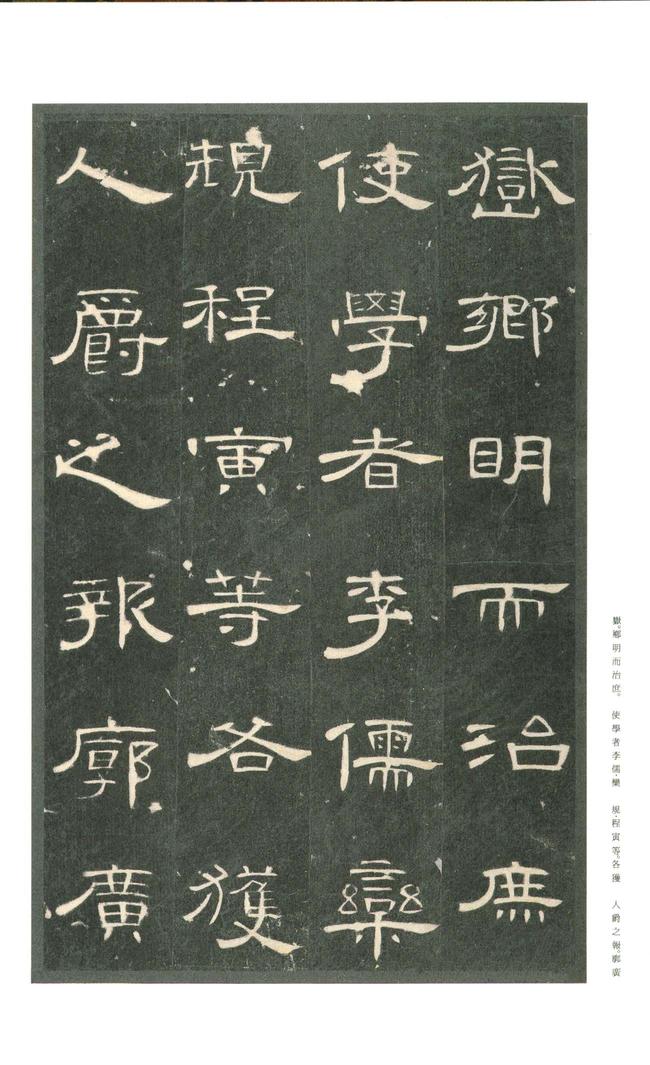 嶽鄉明而治庶
使學者李儒欒
規程寅等各獲
人爵之報廓廣
嶽。鄉明而治庶。　使學者李儒、欒　規、程寅等。各獲　人爵之報。廓廣